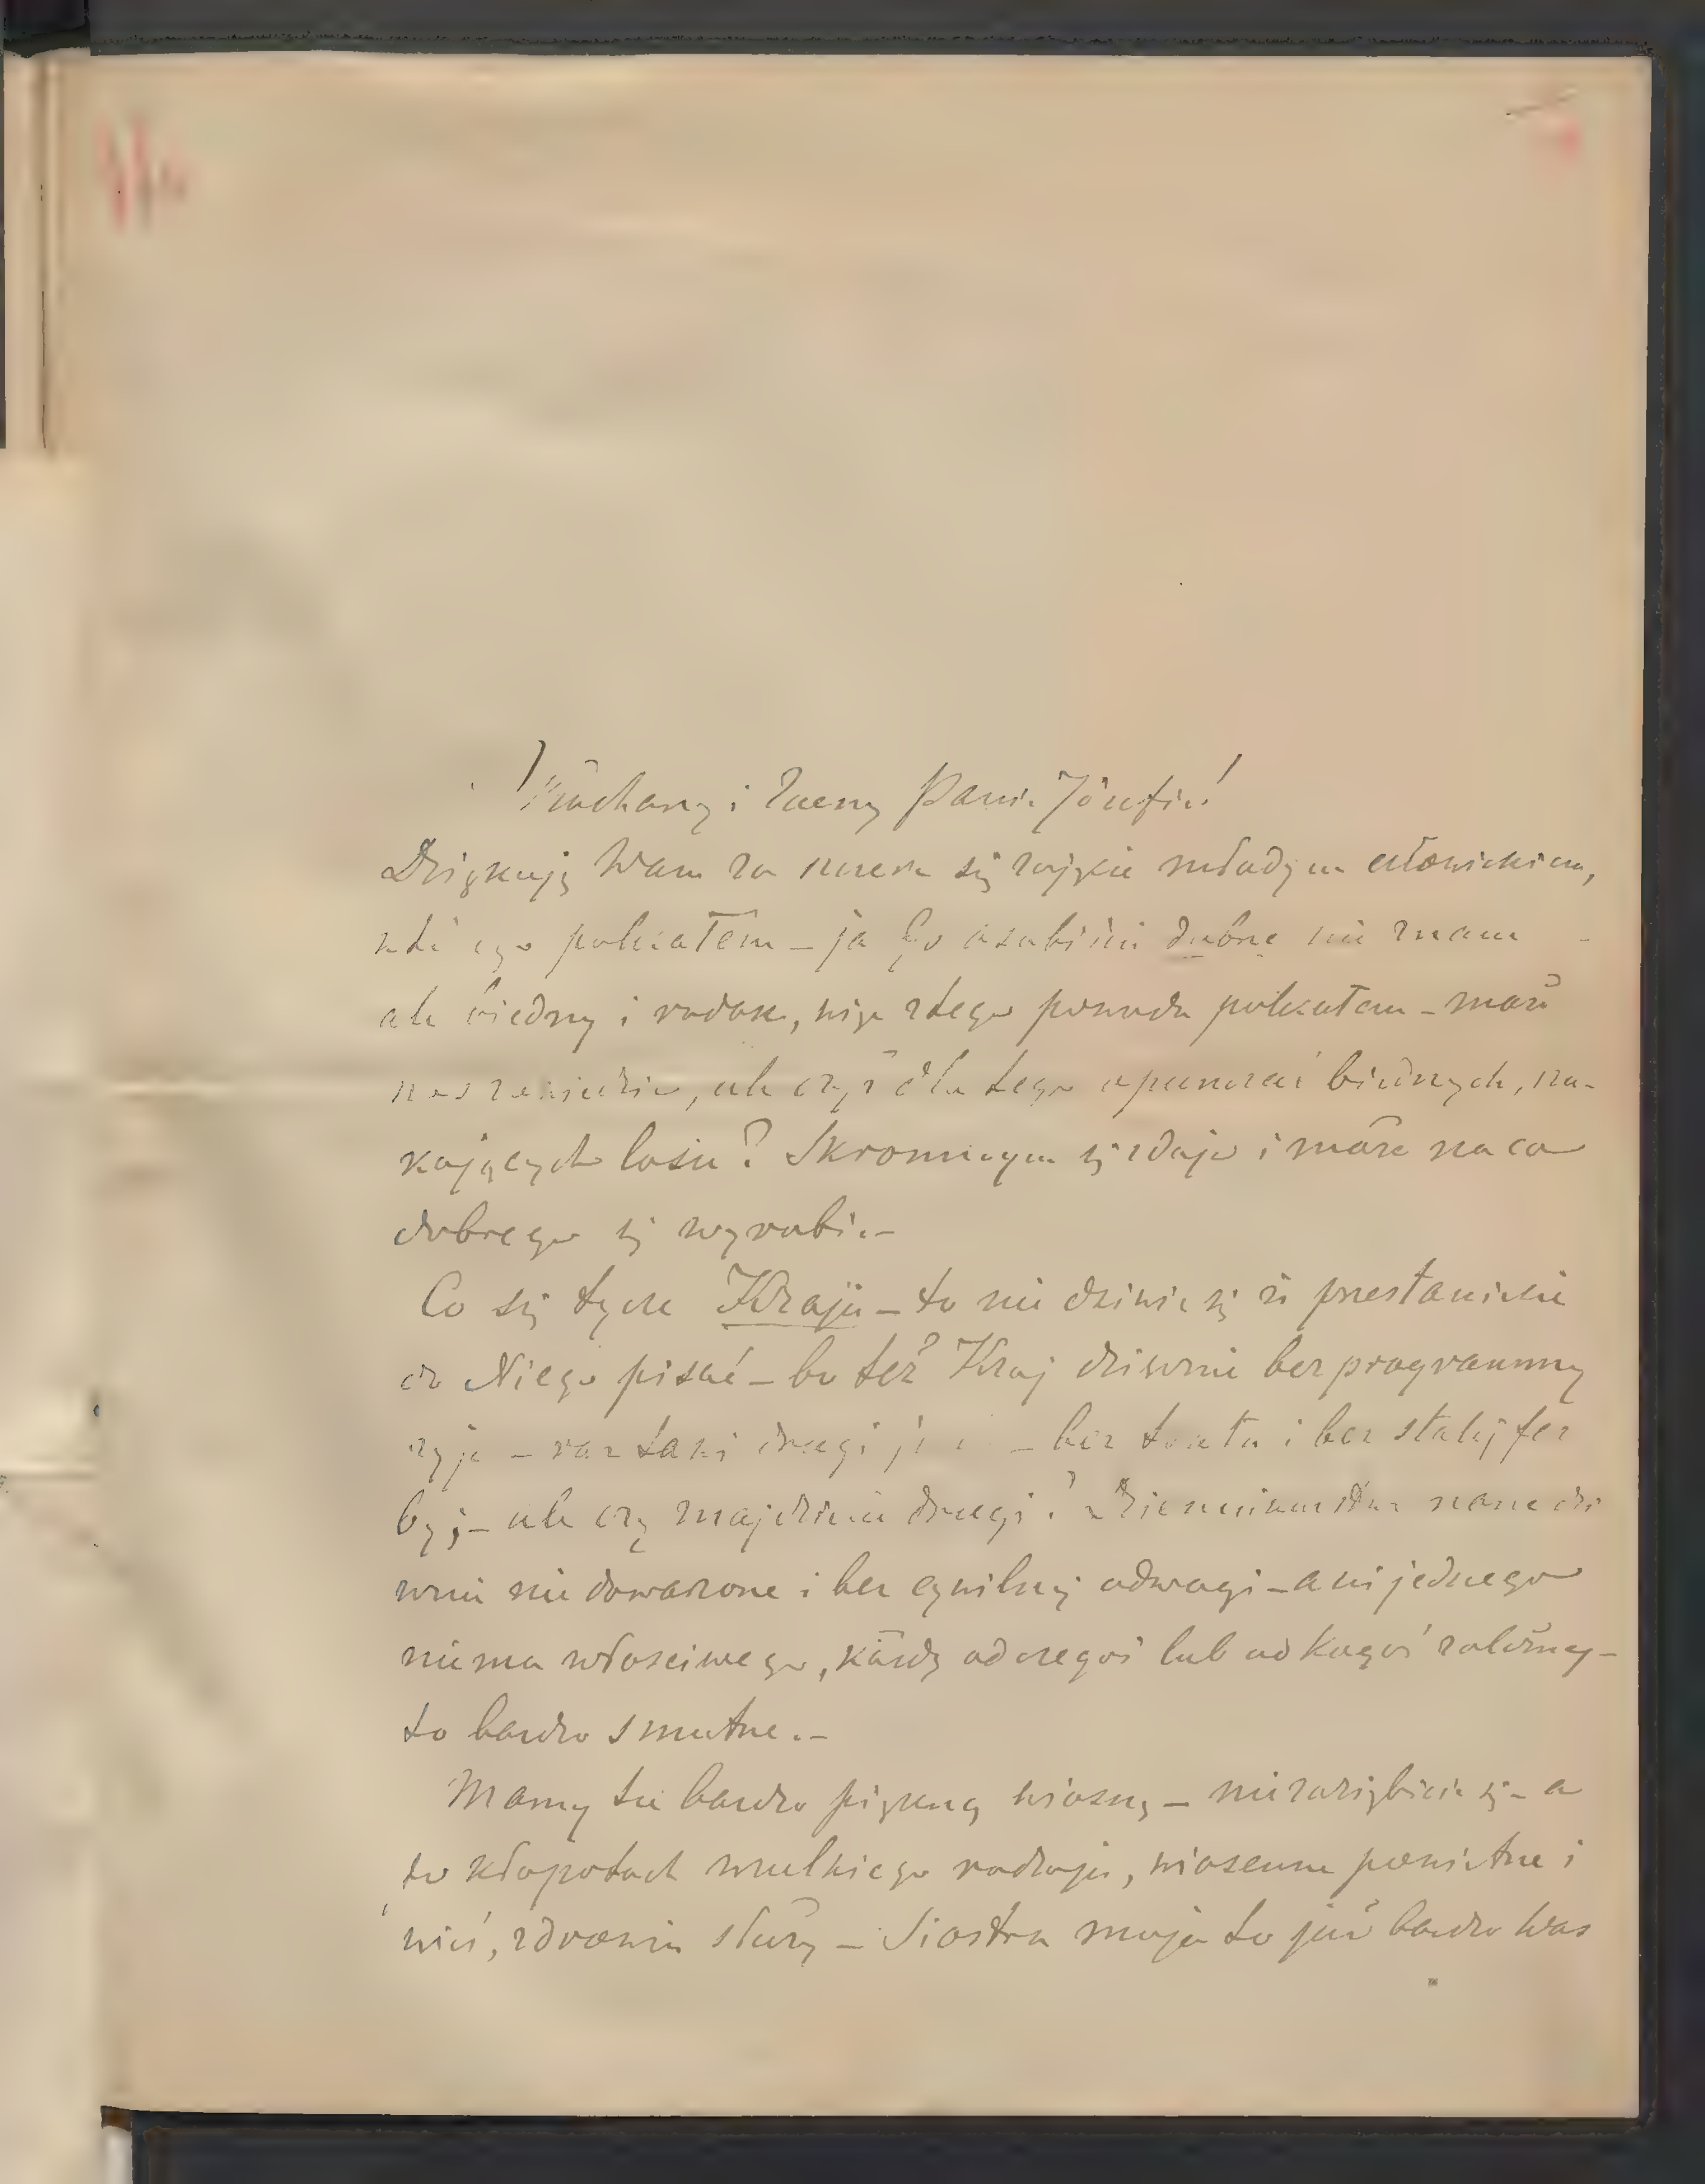 Kochany i Zacny Panie Józefie!
Dziękuję Wam za szczere się zajęcie młodym człowiekiem,
polecałem – ja go osobiście dobrze nie znam
ale biedny i rodak, więc z tego powodu polecałem – może
nas zawiedzie, ale czyż dla tego opuszczać biednych, szu-
kających losu? Skromnym się zdaje i może na co
dobrego się wyrobi. –
Co się tycze Kraju – to nie dziwię się że przestaniecie
do Niego pisać – bo też Kraj dziwnie bez programmy
żyje – raz taki drugi – bez taktu i bez stałej fer
by; – ale czy znajdziecie drugi? Dziennikarstwo nasze dzi
wnie niedowarzone i bez cywilnej odwagi – ani jednego
niema właściwego, każdy od czegoś lub od kogoś zależny –
to bardzo smutne. –
Mamy tu bardzo piękną wiosnę – nie zaziębicie się – a
po kłopotach wszelkiego rodzaju, wiosenne powietrze i
wieś, zdrowiu służy – Siostra moja to już bardzo Was